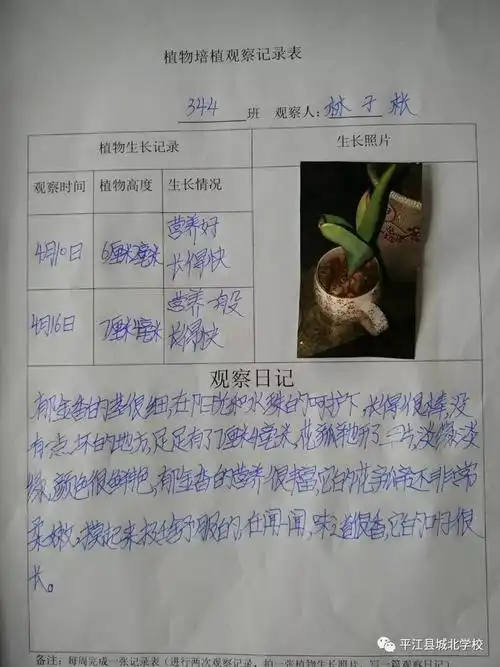 植物培植观察记录表
344 班 观察人:林子枨
植物生长记录 生长照片
观察时间 植物高度 生长情况
4月10日 6厘米2毫米 营养好
长得快
4月16日 7厘米4毫米 营养一般
长得快
观察日记
郁金香的茎很细,在阳光和水珠的呵护下,长得很棒,没
有一点坏的地方,足足有了7厘米4毫米,花瓣开了三片,淡绿淡
绿,颜色很鲜艳,郁金香的营养很丰富,它的花还非常
柔嫩,摸起来挺舒服的,在闻一闻,味道很香,它的叶很
长。
备注:每周完成一张记录表(进行两次观察记录,拍一张植物生长照片,写一篇观察日记)
平江县城北学校